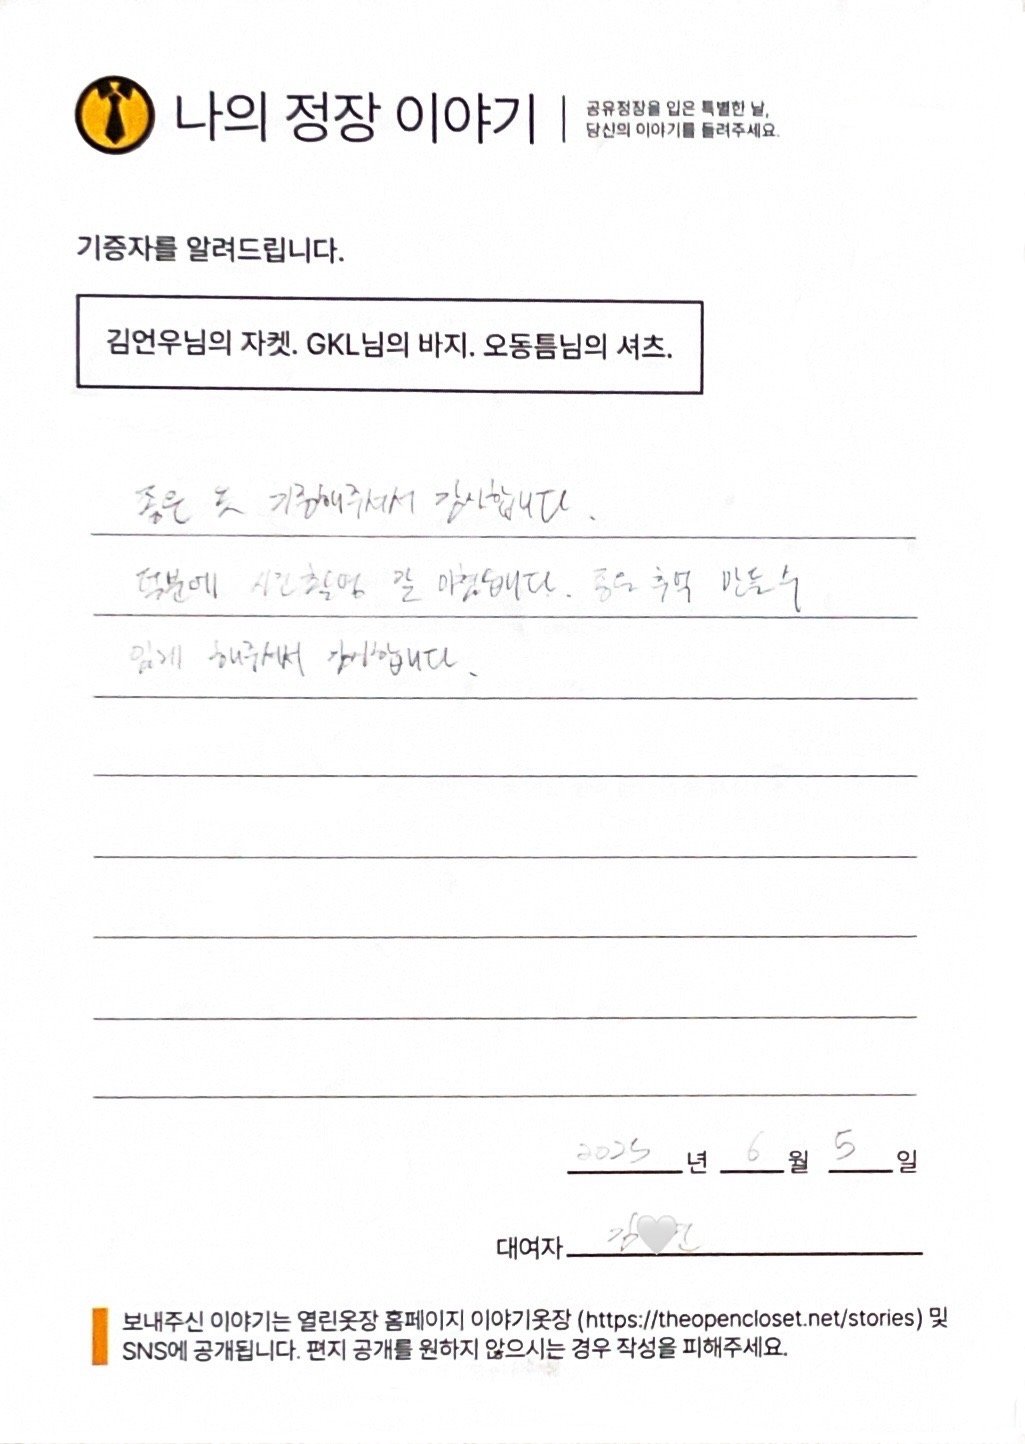 나의 정장 이야기
공유정장을 입은 특별한 날,
당신의 이야기를 들려주세요.
기증자를 알려드립니다.
김언우님의 자켓. GKL님의 바지. 오동틈님의 셔츠.
좋은 옷 기증해주셔서 감사합니다.
덕분에 사진촬영 잘 이행됩니다. 좋은 추억 만들 수
있게 해주셔서 감사합니다.
2025년 6월 5일
대여자 김 진
보내주신 이야기는 열린옷장 홈페이지 이야기옷장 (https://theopencloset.net/stories) 및
SNS에 공개됩니다. 편지 공개를 원하지 않으시는 경우 작성을 피해주세요.